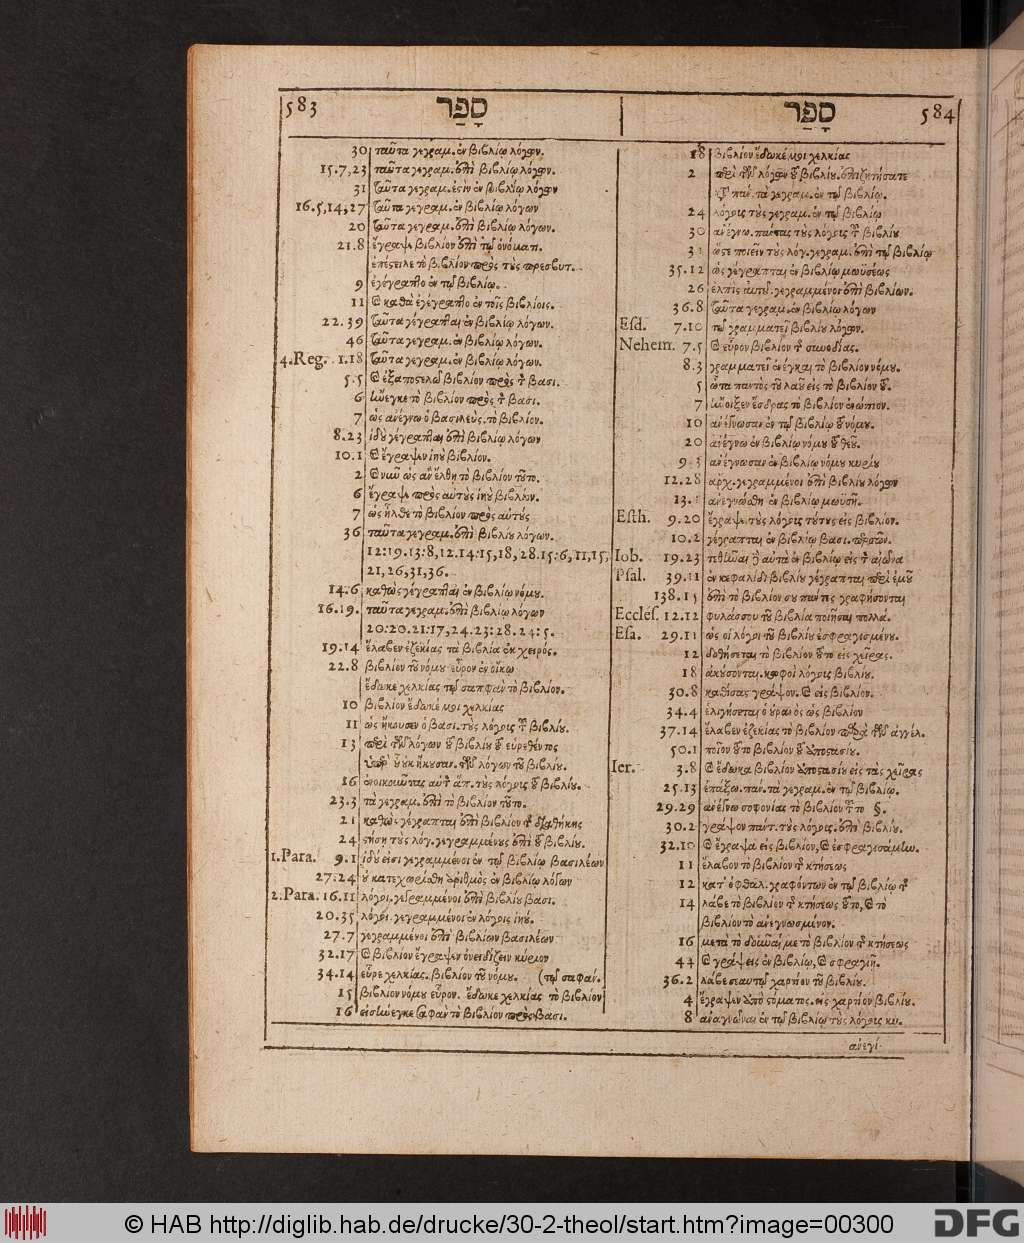 583 סָפַר
30 ταῦτα γεγραμ. ἐν βιβλίῳ λόγων.
15.7,23 ταῦτα γεγραμ. ἐπὶ βιβλίῳ λόγων.
31 ταῦτα γεγραμ. ἐςὶν ἐν βιβλίῳ λόγων
16.5,14,27 ταῦτα γεγραμ. ἐν βιβλίῳ λόγων
20 ταῦτα γεγραμ. ἐπὶ βιβλίῳ λόγων.
21.8 ἔγραψε βιβλίον ἐπὶ τῷ ὀνόματι.
ἀπέςειλε τὸ βιβλίον πρὸς τοὺς πρεσβυτ.
9 ἐγέγραπτο ἐν τῷ βιβλίῳ.
11 καὶ καθὰ ἐγέγραπτο ἐν τοῖς βιβλίοις.
22.39 ταῦτα γέγραπται ἐν βιβλίῳ λόγων.
46 ταῦτα γεγραμ. ἐν βιβλίῳ λόγων.
4.Reg. 1.18 ταῦτα γεγραμ. ἐν βιβλίῳ λόγων.
5.5 καὶ ἐξαποςελῶ βιβλίον πρὸς τ βασι.
6 ἤνεγκε τὸ βιβλίον πρὸς τ βασι.
7 ὡς ἀνέγνω ὁ βασιλεὺς τὸ βιβλίον.
8.23 ἰδοὺ γέγραπται ἐπὶ βιβλίῳ λόγων
10.1 καὶ ἔγραψεν ἰηοὺ βιβλίον.
2 καὶ νῦν ὡς ἂν ἔλθη τὸ βιβλίον τοῦτο.
6 ἔγραψε πρὸς αὐτοὺς ἰηοὺ βιβλίον.
7 ὡς ἦλθε τὸ βιβλίον πρὸς αὐτούς
36 ταῦτα γεγραμ. ἐπὶ βιβλίου λόγων.
12:19.13:8,12.14:15,18,28.15:6,11,15,
21,26,31,36.
14:6 καθὼς γέγραπται ἐν βιβλίῳ νόμου.
16.19. ταῦτα γεγραμ. ἐπὶ βιβλίῳ λόγων
20:20.21:17,24.23:28.24:5.
19.14 ἔλαβεν ἐζεκίας τὰ βιβλία ἐκ χειρός.
22.8 βιβλίον τοῦ νόμου εὗρον ἐν οἴκῳ
ἔδωκε χελκίας τῷ σαπφὰν τὸ βιβλίον.
10 βιβλίον ἔδωκέ μοι χελκίας
11 ὡς ἤκουσεν ὁ βασι. τοὺς λόγοις τ βιβλίου.
13 περὶ τῶν λόγων τοῦ βιβλίου τοῦ εὑρεθέντος
ὑπὲρ οὗ οὐκ ἤκουσαν τῶν λόγων τοῦ βιβλίου.
16 ἐνοικοῦντας αὐτ ἅπ. τοὺς λόγοις τοῦ βιβλίου.
23.3 τὰ γεγραμ. ἐπὶ τὸ βιβλίον τοῦτο.
21 καθὼς γέγραπται ἐπὶ βιβλίου τ διαθήκης
24 ςήση τοὺς λόγ. γεγραμμένους ἐπὶ τοῦ βιβλίου.
1.Para. 9.1 ἰδού εἰσι γεγραμμένοι ἐν τῷ βιβλίῳ βασιλέων
27:24 οὐ κατεχωρίσθη ἀριθμὸς ἐν βιβλίῳ λόγων
2.Para. 16.11 λόγοι. γεγραμμένοι ἐπὶ βιβλίου βασι.
20.35 λόγοι. γεγραμμένοι ἐν λόγοις ἰηού.
27.7 γεγραμμένοι ἐπὶ βιβλίων βασιλέων
32.17 καὶ βιβλίον ἔγραψεν ὀνειδίζειν κύριον
34.14 εὗρε χελκίας. βιβλίον τοῦ νόμου. (τῷ σαφάν.
15 βιβλίον νόμου εὗρον. ἔδωκε χελκίας τὸ βιβλίον
16 εἰσήνεγκε σαφὰν τὸ βιβλίον πρὸς βασι.
סָפַר 584
18 βιβλίον ἔδωκέ μοι χελκίας
2 περὶ τῶν λόγων τοῦ βιβλίου. ἐπιζητήσατε
παν. τὰ γεγραμ. ἐν τῷ βιβλίῳ.
24 λόγοις τοὺς γεγραμ. ἐν τῷ βιβλίῳ
30 ἀνέγνω. πάντας τοὺς λόγοις τ βιβλίου
31 ὥςε ποιεῖν τοὺς λόγ. γεγραμ. ἐπὶ τῷ βιβλίῳ
35.12 ὡς γέγραπται ἐν βιβλίῳ μωϋσέως
26 ἐλπὶς αὐτοῦ. γεγραμμένοι ἐπὶ βιβλίων.
36.8 ταῦτα γεγραμ. ἐν βιβλίῳ λόγων
Esd. 7.10 τῷ γραμματεῖ βιβλίου λόγων.
Nehem. 7.5 καὶ εὗρον βιβλίον τ συνοδίας.
8.3 γραμματεῖ ἐνέγκαι τὸ βιβλίον νόμου.
5 ὦτα παντὸς τοῦ λαοῦ εἰς τὸ βιβλίον τοῦ.
7 ἤνοιξεν ἔσδρας τὸ βιβλίον ἐνώπιον.
10 ἀνέγνωσαν ἐν τῷ βιβλίῳ τοῦ νόμου.
20 ἀνέγνω ἐν βιβλίῳ νόμου τοῦ θεοῦ.
9.3 ἀνέγνωσαν ἐν βιβλίῳ νόμου κυρίου
12.28 ἄρχ. γεγραμμένοι ἐπὶ βιβλίου λόγων
13.1 ἀνεγνώσθη ἐν βιβλίῳ μωϋσῆ.
Esth. 9.20 ἔγραψε. τοὺς λόγοις τούτους εἰς βιβλίον.
10.2 γέγραπται ἐν βιβλίῳ βασι. περσῶν.
Iob. 19.23 τεθῆναι αὐτὰ ἐν βιβλίῳ εἰς τ αἰῶνα
Psal. 39.11 ἐν κεφαλίδι βιβλίου γέγραπται περὶ ἐμοῦ
138.15 ἐπὶ τὸ βιβλίον σου πάντες γραφήσονται
Eccles. 12.12 φυλάσσου τοῦ βιβλία ποιῆσαι πολλά.
Esa. 29.11 ὡς οἱ λόγοι τοῦ βιβλίου ἐσφραγισμένου.
12 δοθήσεται τὸ βιβλίον τοῦτο εἰς χεῖρας.
18 ἀκούσονται. κωφοὶ λόγοις βιβλίου.
30.8 καθίσας γράψον. καὶ εἰς βιβλίον.
34.4 ἑλιγήσεται ὁ οὐρανὸς ὡς βιβλίον
37.14 ἔλαβεν ἐζεκίας τὸ βιβλίον παρὰ τῶν ἀγγέλ.
50.1 ποῖον τοῦτο βιβλίον τοῦ ἀποςασίου.
Ier. 3.8 καὶ ἔδωκα βιβλίον ἀποςασίου εἰς τὰς χεῖρας
25.13 ἐπάξω. παν. τὰ γεγραμ. ἐν τῷ βιβλίῳ.
29.29 ἀνέγνω σοφονίας τὸ βιβλίον τοῦτο §.
30.2 γράψον πάντ. τοὺς λόγοις. ἐπὶ βιβλίου.
32.10 καὶ ἔγραψα εἰς βιβλίον, καὶ ἐσφραγισάμην.
11 ἔλαβον τὸ βιβλίον τ κτήσεως
12 κατ' ὀφθαλ. γραφόντων ἐν τῷ βιβλίῳ τ
14 λάβε τὸ βιβλίον τ κτήσεως τοῦτο, καὶ τὸ
βιβλίον τὸ ἀνεγνωσμένον.
16 μετὰ τὸ δοῦναί με τὸ βιβλίον τ κτήσεως
44 καὶ γράψεις ἐν βιβλίῳ, καὶ σφραγιῇ.
36.2 λάβε σεαυτῷ χαρτίον τοῦ βιβλίου.
4 ἔγραψεν ἀπὸ ςόματος. εἰς χαρτίον βιβλίου.
8 ἀναγνῶναι ἐν τῷ βιβλίῳ τοὺς λόγοις κυ.
ἀνεγί-
© HAB http://diglib.hab.de/drucke/30-2-theol/start.htm?image=00300 DFG